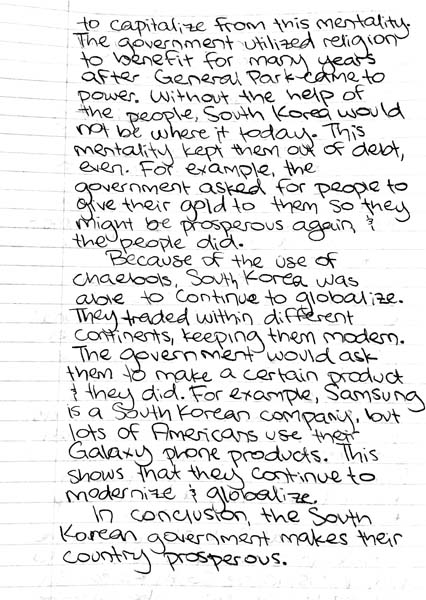 to capitalize from this mentality.
The government utilized religion
to benefit for many years
after General Park came to
power. Without the help of
the people, South Korea would
not be where it today. This
mentality kept them out of debt,
even. For example, the
government asked for people to
give their gold to them so they
might be prosperous again, &
the people did.
Because of the use of
chaebols, South Korea was
able to continue to globalize.
They traded within different
continents, keeping them modern.
The government would ask
them to make a certain product
& they did. For example, Samsung
is a South Korean company, but
lots of Americans use their
Galaxy phone products. This
shows that they continue to
modernize & globalize.
In conclusion, the South
Korean government makes their
country prosperous.